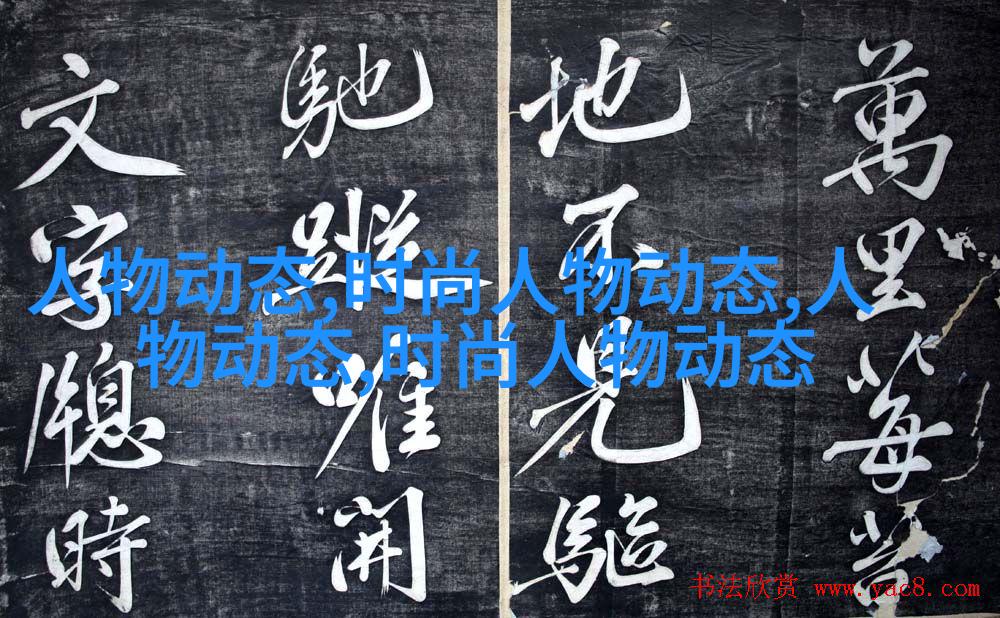 萬里莓苔
地不見驅
馳蹤唯開
文字牕時
人物动态,时尚人物动态,人
物动态,时尚人物动态
书法欣赏 www.yac8.com